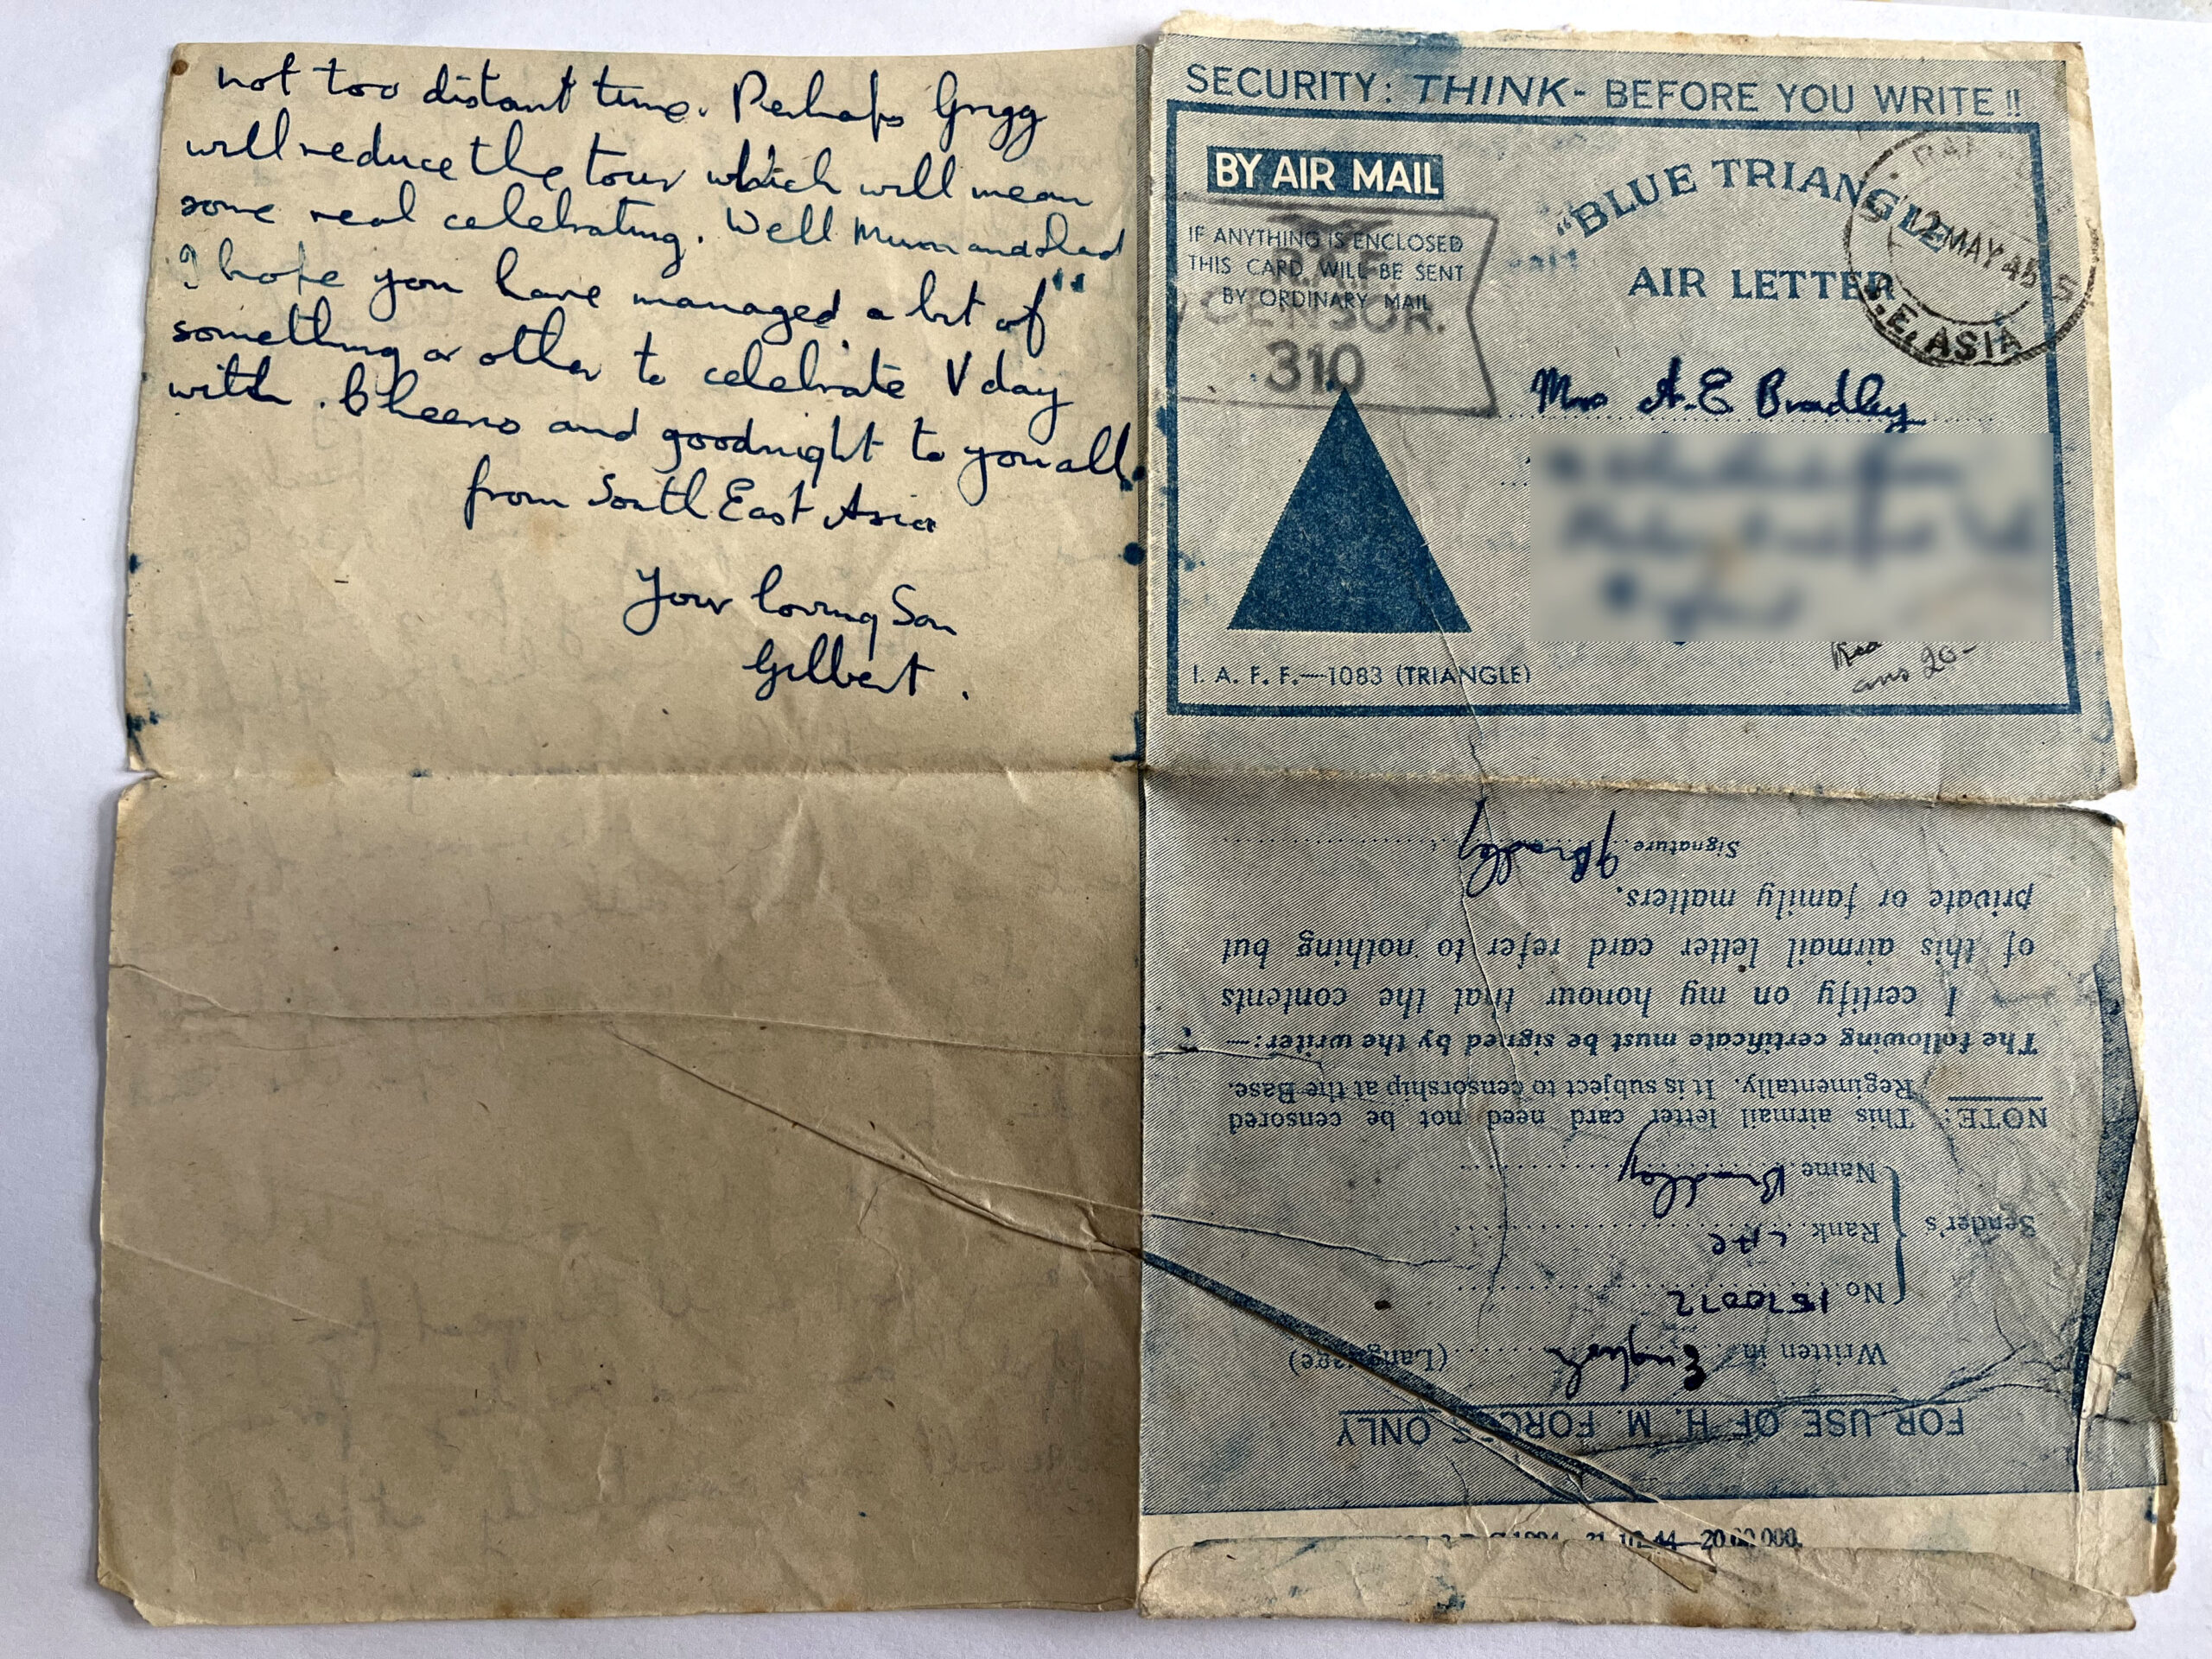 not too distant time. Perhaps Grigg
will reduce the tour which will mean
some real celebrating. Well Mum and Dad
I hope you have managed a bit of "
something or other to celebrate V day
with. Cheerio and goodnight to you all.
from South East Asia
Your loving Son
Gilbert.
SECURITY: THINK- BEFORE YOU WRITE !!
BY AIR MAIL
"BLUE TRIANGLE
AIR LETTER
IF ANYTHING IS ENCLOSED
THIS CARD WILL BE SENT
BY ORDINARY MAIL
R.A.F.
CENSOR.
310
12 MAY 45
S.E. ASIA
Mrs A.E. Bradley
I. A. F. F.—1083 (TRIANGLE)
ans 20-
FOR USE OF H. M. FORCES ONLY
Written in English (Language)
Sender's
No. 1570072
Rank LAC
Name Bradley
NOTE: This airmail letter card need not be censored
Regimentally. It is subject to censorship at the Base.
The following certificate must be signed by the writer:—
I certify on my honour that the contents
of this airmail letter card refer to nothing but
private or family matters.
Signature GBradley
21-10-44—20,00,000.